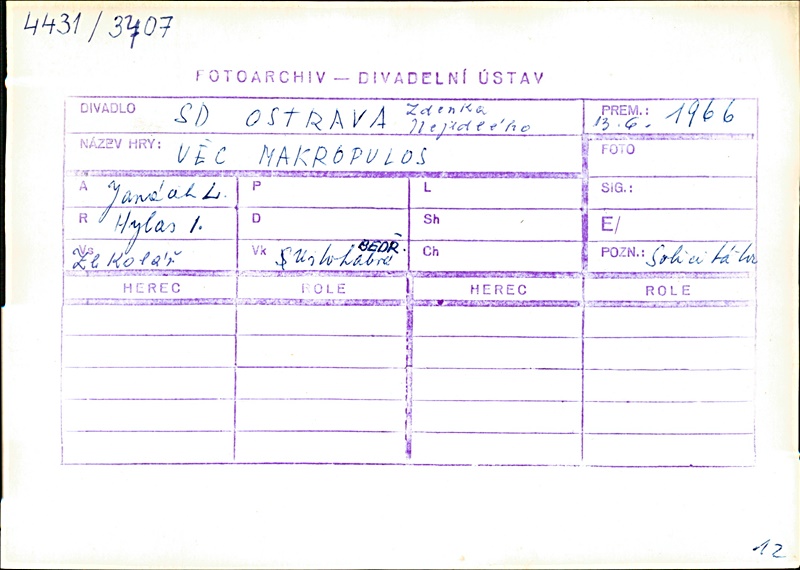 4431 / 3707
FOTOARCHIV — DIVADELNÍ ÚSTAV
DIVADLO SD OSTRAVA Zdenka Nejedlého PREM.: 13. 6. 1966
NÁZEV HRY: VĚC MAKROPULOS FOTO
A Janáček L. P L SIG.:
R Hylas I. D Sh E/
Vs Zb Kolář Vk BEDŘ. Ch POZN.:
HEREC ROLE HEREC ROLE
12